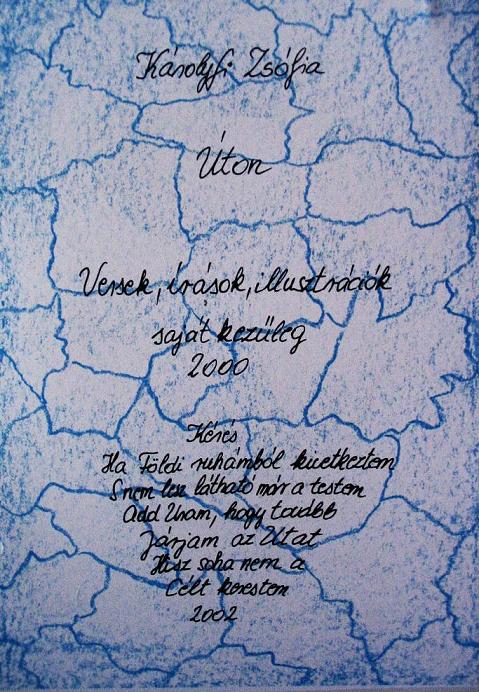 Károlyfi Zsófia
Úton
Versek, írások, illusztrációk
saját kezűleg
2000
Kérés
Ha Földi ruhámból kivetkeztem
S nem lesz látható már a testem
Add Uram, hogy tovább
Járjam az Utat
Hisz soha nem a
Célt kerestem
2002